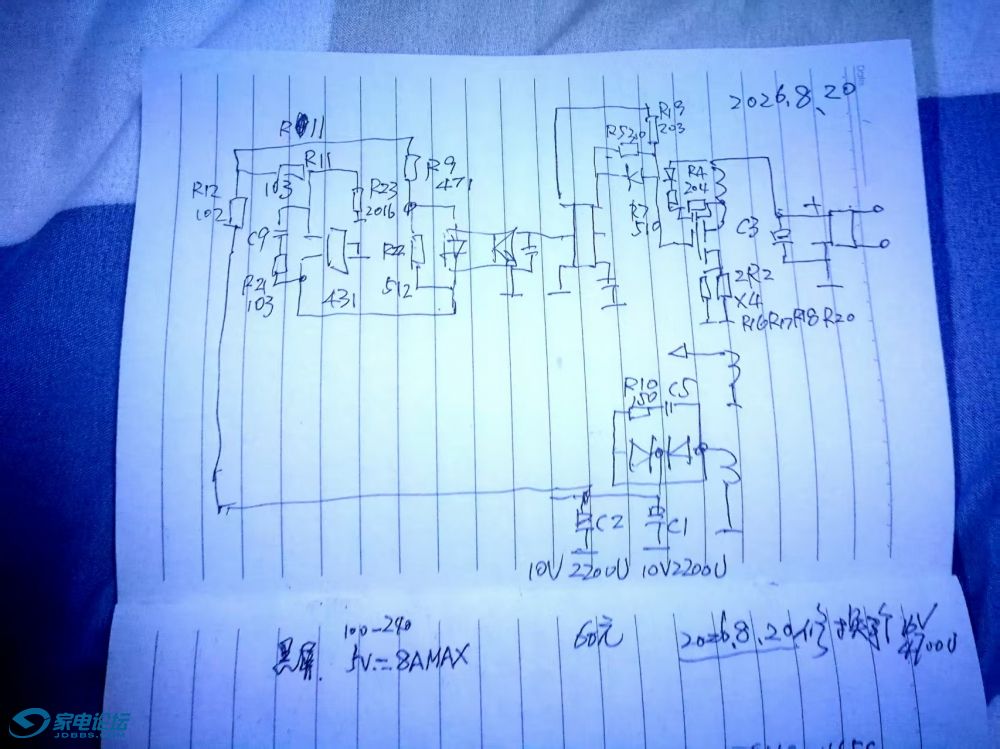 2026.8.20
R11
R19
203
R5
R11
103
R12
102
R23
2016
R9
471
R4
204
R7
510
C9
R21
103
431
R22
512
C3
+
2R2
X4
R16R17R18R20
R10
150
C5
C2
C1
10V 2200U
10V2200U
100-240
黑屏.
5V=8AMAX
60元
2026.8.20修 换了个
16V
4700U
家电论坛
JDBBS.COM